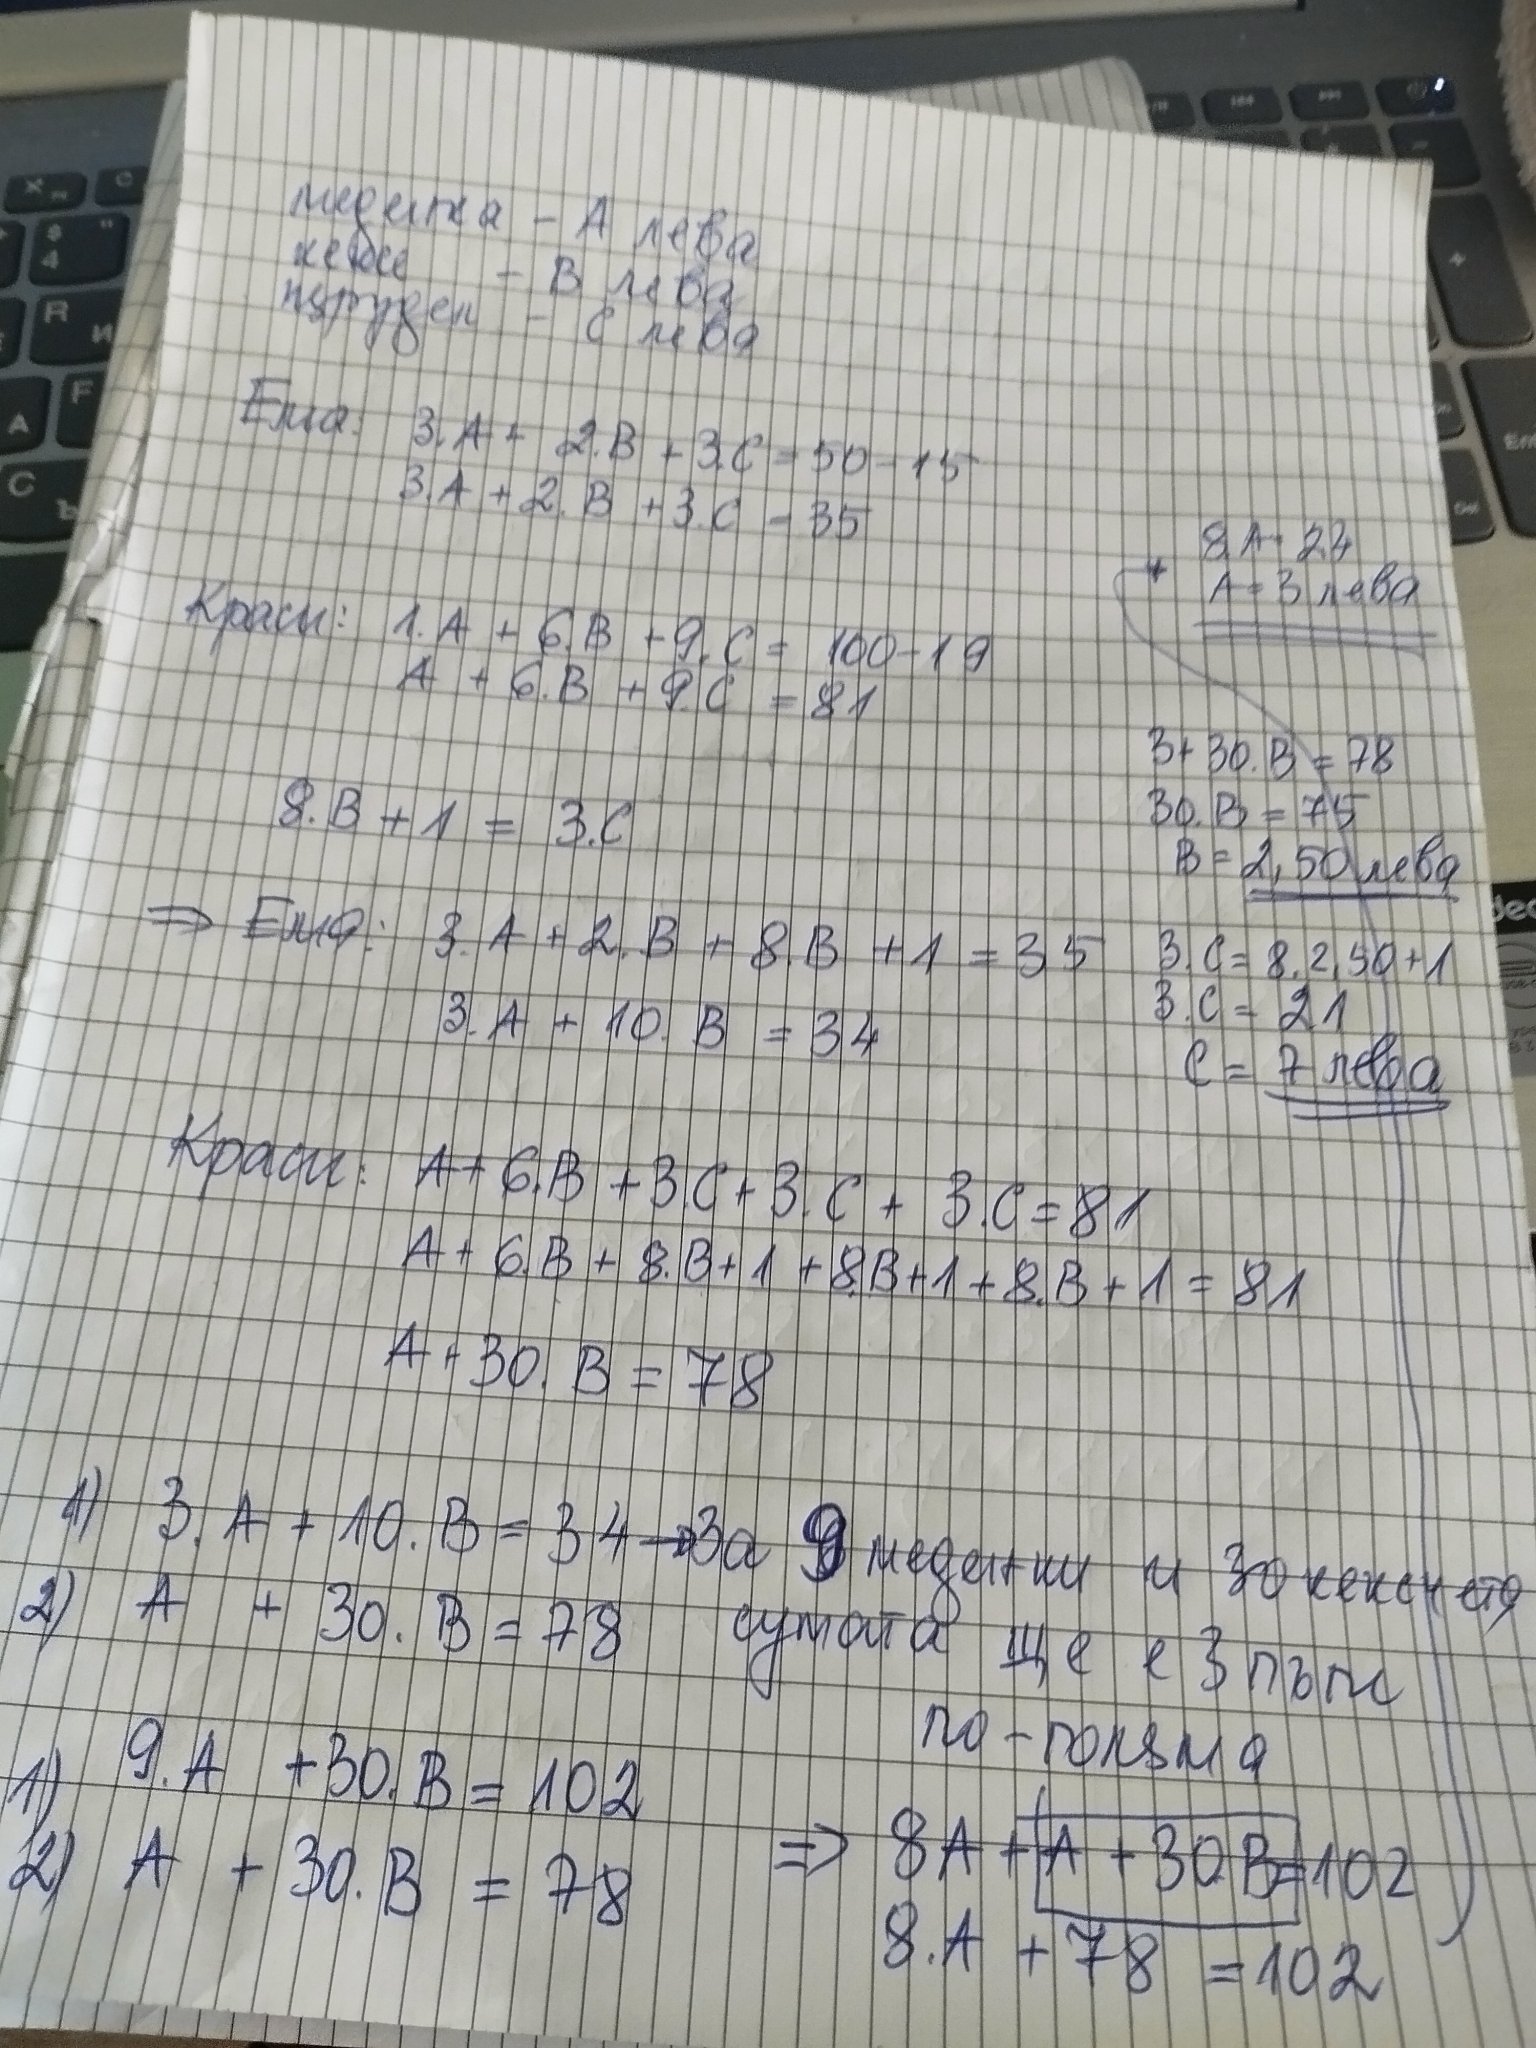 меденка - А лева
кекс - В лева
пудинг - С лева
Ема: 3.А + 2.В + 3.С = 50 - 15
3.А + 2.В + 3.С = 35
Краси: 1.А + 6.В + 9.С = 100 - 19
А + 6.В + 9.С = 81
8.В + 1 = 3.С
=> Ема: 3.А + 2.В + 8.В + 1 = 35
3.А + 10.В = 34
Краси: А + 6.В + 3.С + 3.С + 3.С = 81
А + 6.В + 8.В + 1 + 8.В + 1 + 8.В + 1 = 81
А + 30.В = 78
1) 3.А + 10.В = 34 → За 9 меденки и 30 кексчета
2) А + 30.В = 78 сумата ще е 3 пъти
по-голяма
1) 9.А + 30.В = 102
2) А + 30.В = 78
=> 8А + А + 30.В = 102
8.А + 78 = 102
8А = 24
А = 3 лева
3 + 30.В = 78
30.В = 75
В = 2,50 лева
3.С = 8.2,50 + 1
3.С = 21
С = 7 лева